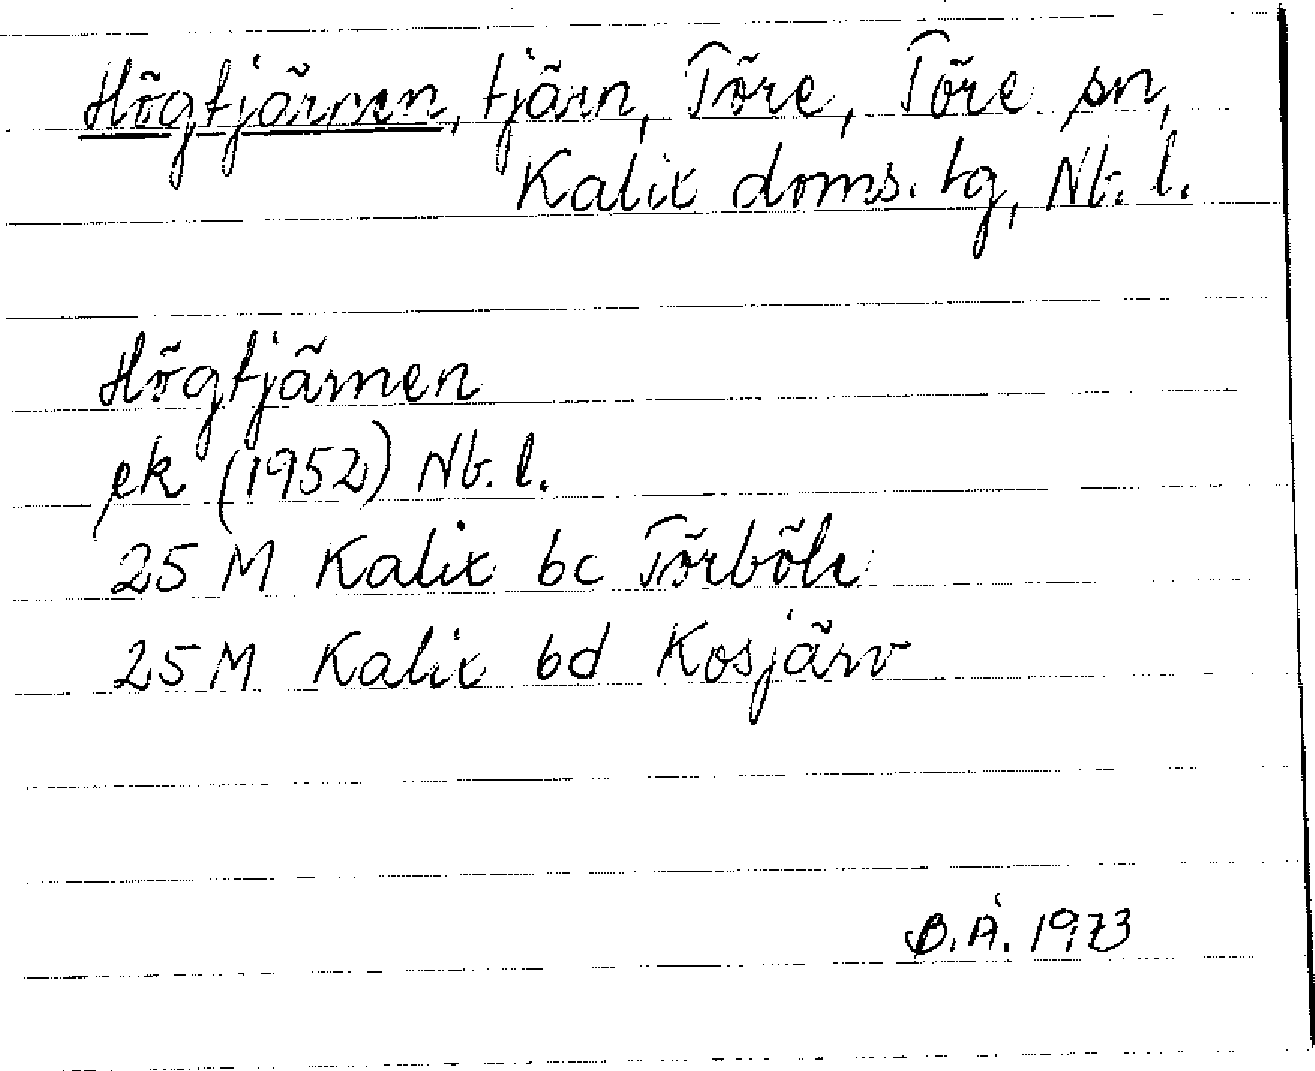 Högtjärnen, tjärn, Töre, Töre sn,
Kalix doms. tg, Nb. l.
Högtjärnen
ek (1952) Nb. l.
25 M Kalix bc Törböle
25 M Kalix bd Kosjärv
B.Å. 1973